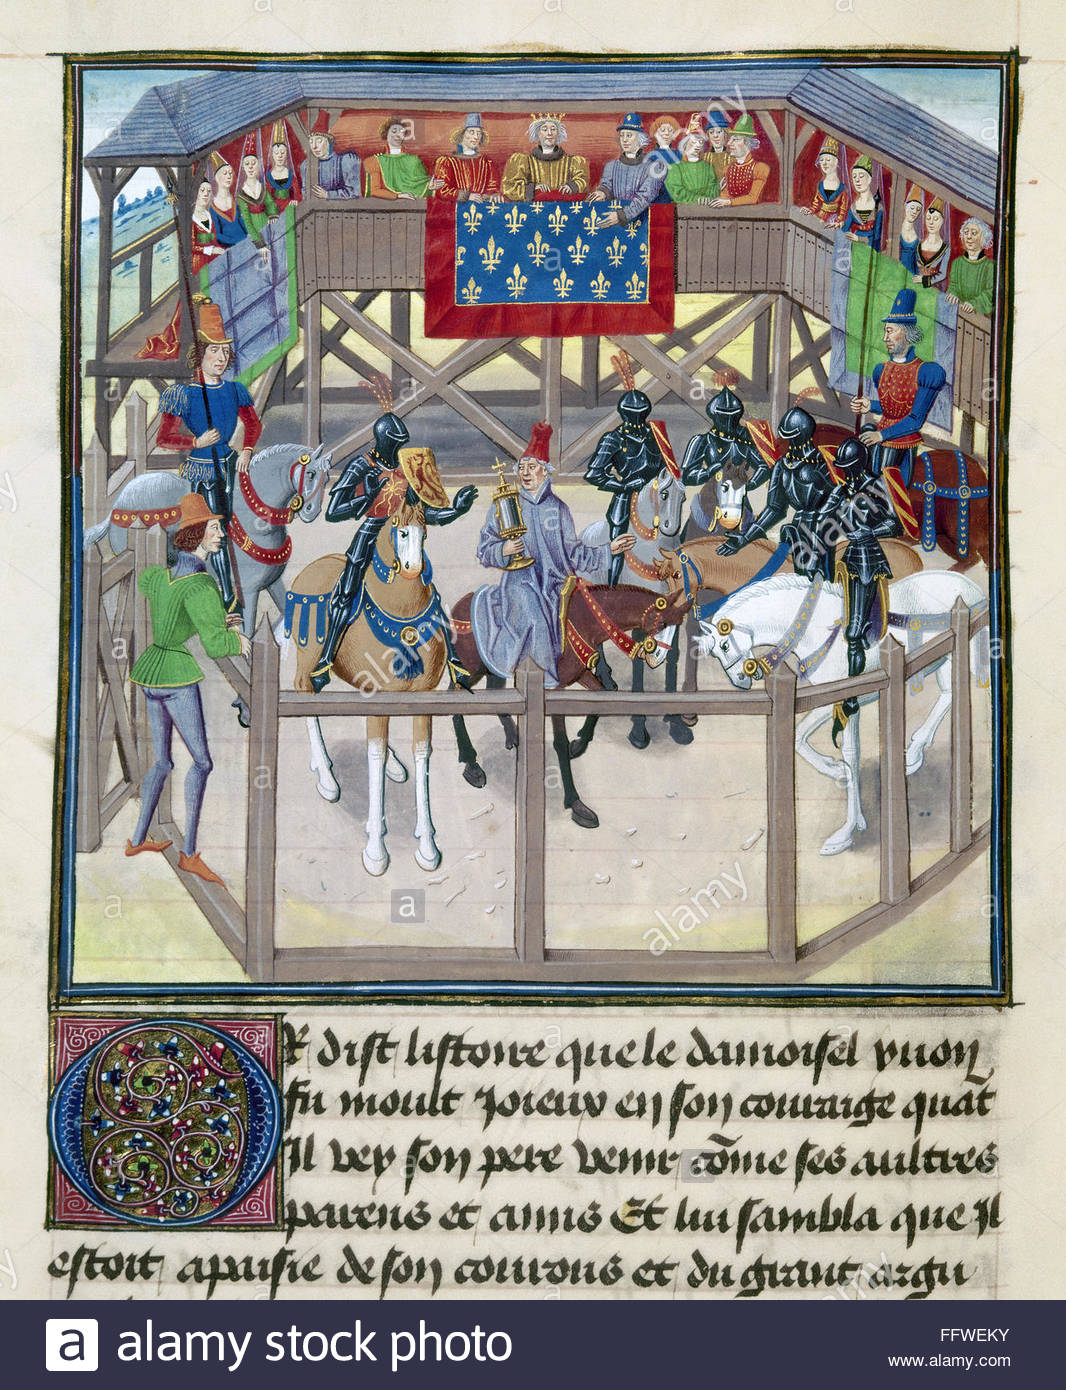 Or dist listoire que le damoisel yuon
fu moult Joieux en son couraige quāt
Il vey son pere venir cōme ses aultres
parens et amis Et lui sambla que Il
estoit apaisie de son courous et du grant argu
a alamy stock photo
FFWEKY
www.alamy.com